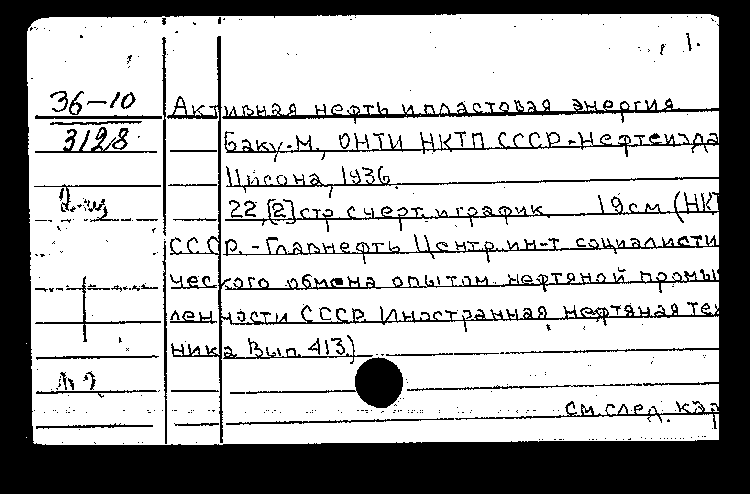 1.
36-10
3128
Активная нефть и пластовая энергия.
Баку-М., ОНТИ НКТП СССР.-Нефтеизда
Цисона, 1936.
22,[2] стр. с черт. и график. 19 см (НКТ
СССР.-Главнефть Центр. ин-т социалисти
ческого обмена опытом нефтяной промы
ленности СССР. Иностранная нефтяная тех
ника Вып. 413.)
см. след. кар